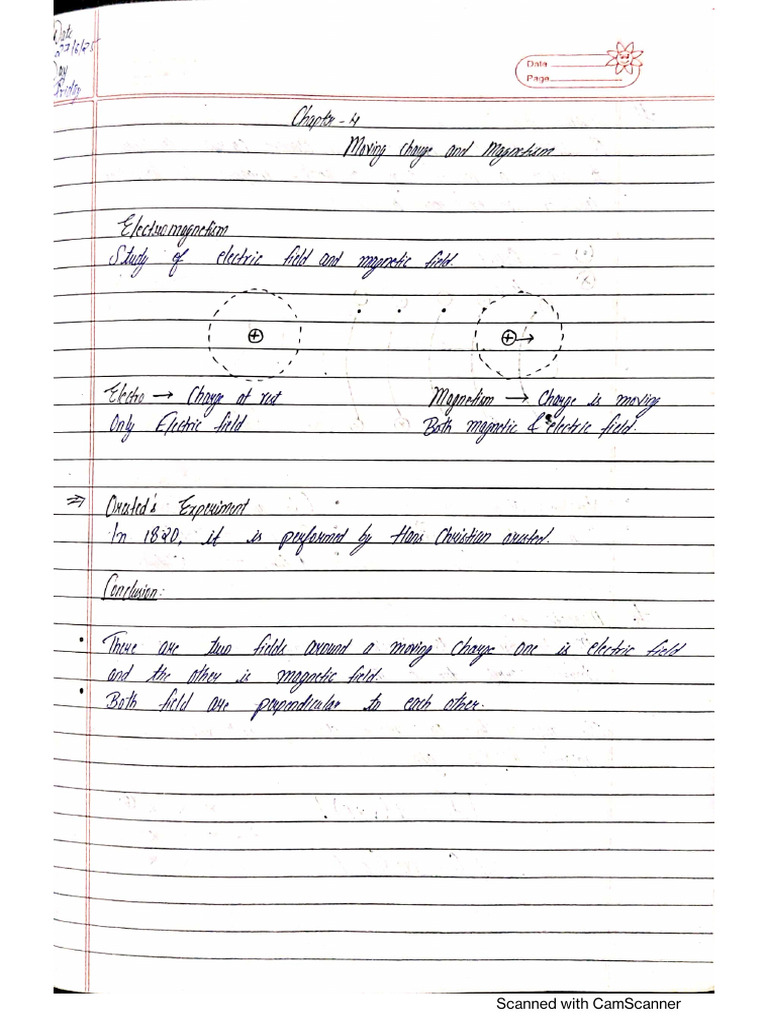 Date
27/6/25
Day
Friday
Date
Page
Chapter - 4
Moving charge and Magnetism
Electromagnetism
Study of electric field and magnetic field.
Electro → Charge at rest
Magnetism → Charge is moving
Only Electric field
Both magnetic & electric field.
⇒ Orested's Experiment
In 1820, it is performed by Hans Christian orested.
Conclusion:
• There are two fields around a moving charge one is electric field
and the other is magnetic field.
• Both field are perpendicular to each other.
Scanned with CamScanner